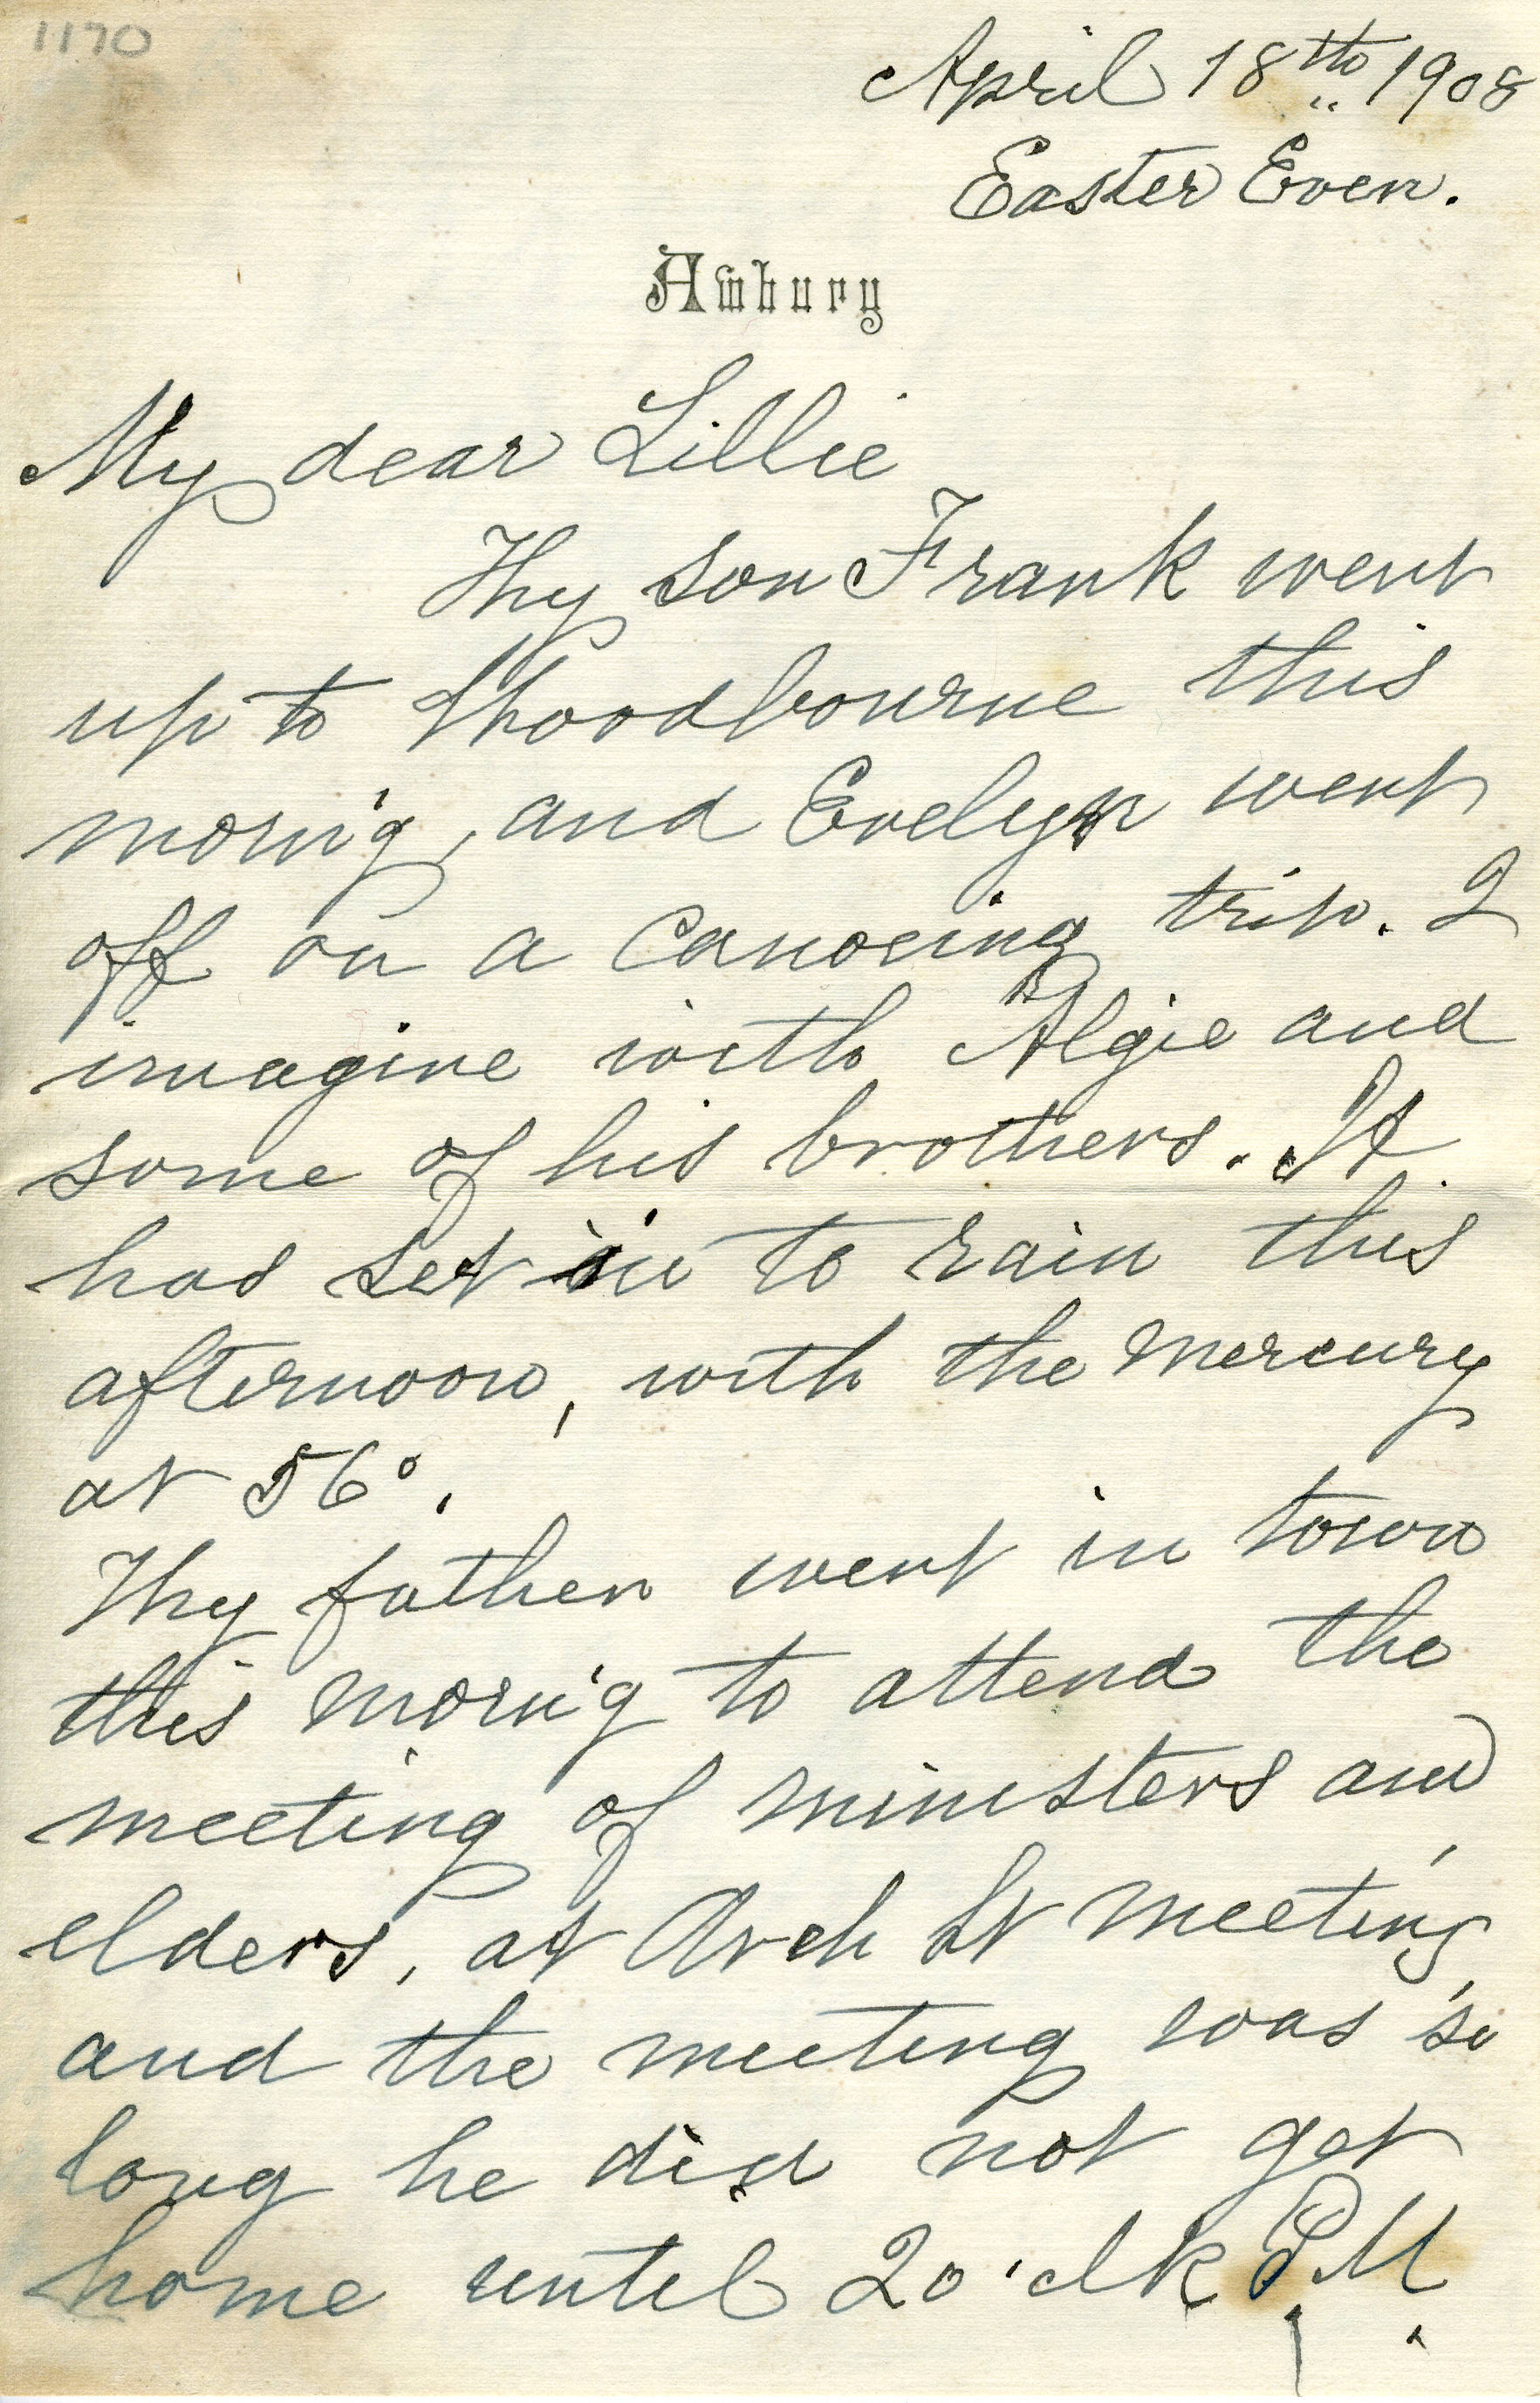 1170
April 18th 1908
Easter Even.
Awbury
My dear Lillie
Thy son Frank went
up to Woodbourne this
morn'g, and Evelyn went
off on a canoeing trip. I
imagine with Algie and
some of his brothers. It
has set in to rain this
afternoon, with the mercury
at 56°.
Thy father went in town
this morn'g to attend the
meeting of ministers and
elders, at Arch St meeting,
and the meeting was so
long he did not get
home until 2 o'clk P.M.